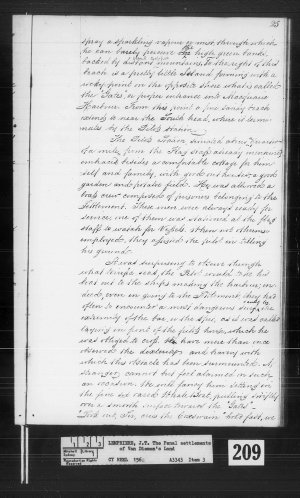 25
spray & sparkling vapour or mist through which
he can barely perceive the high green bands
backed by distant mountains. To the right of this
beach is a pretty little Island forming with a
rocky point on the opposite shore what is called
the Gates or proper entrance into Macquarie
Harbour. From this point a fine sandy beach
extends to near the South head, where it termi-
nates by the Pilots Station.
The Pilots Station situated about
of a mile from the Flag staff already mentioned
embraced besides a comfortable cottage for him-
self and family, with good out houses, a good
garden and potatoe field. He was allowed a
boats crew composed of prisoners belonging to the
Settlement. These men were always ready for
service, one of them was stationed at the flag
staff to watch for Vessels. When not otherwise
employed, they assisted the pilot in tilling
his ground.
It was surprising to observe through
what terrific seas, the Pilot would take his
boat out to the ships making the harbour, in-
deed, even in going to the Settlement they had
often to encounter a most dangerous surf at the
extremity of the bar, or the Spit, as it was called
laying in front of the pilots house, which he
was obliged to cross. We have more than once
observed the dexterity and bravery with
which this obstacle has been surmounted. A
stranger cannot but feel alarmed on such
an occasion. We will fancy him sitting in
the fine six oared Whale Boat, pulling swiftly
on a smooth surface toward the Gates.
Hold out, Sir, cries the Coxswain hold fast, we
Mitchell Library Sydney
Reproduction Rights Reserved
LEMPRIERE, J.T. The Penal settlements
of Van Diemen's Land
CY REEL 1561 A3343 Item 3
209